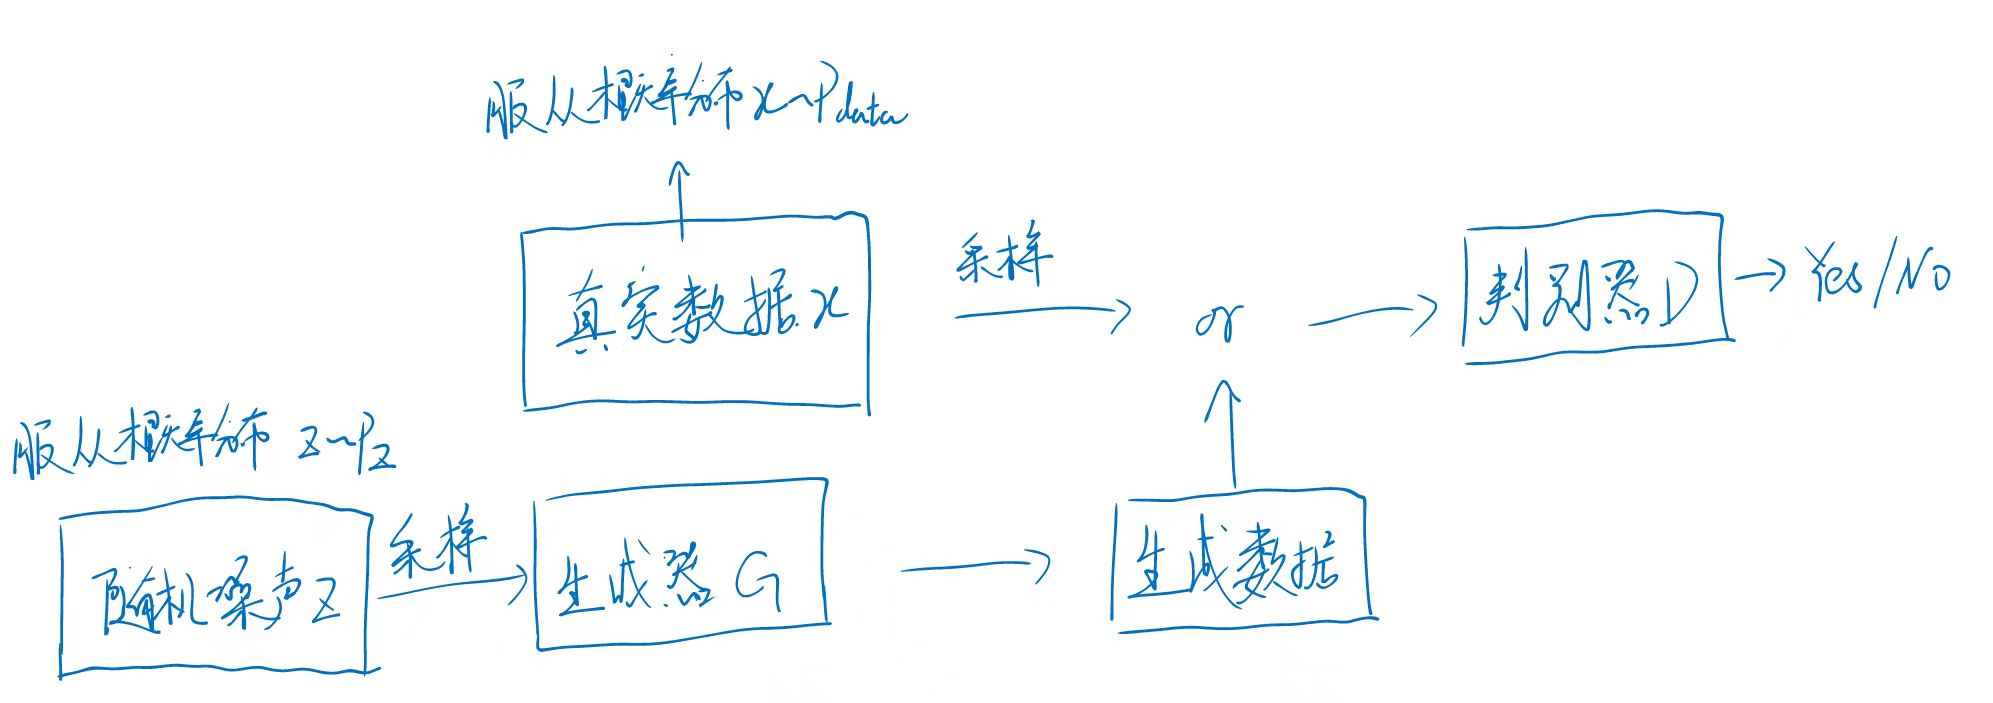 服从概率分布 x~Pdata
采样
真实数据 x
or
判别器 D
Yes/No
服从概率分布 z~Pz
随机噪声 z
采样
生成器 G
生成数据